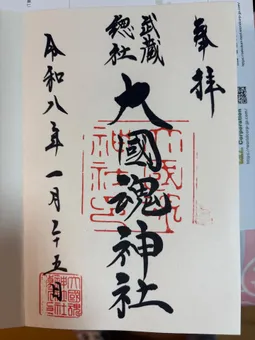 奉拝
武蔵
總社
大國魂神社
令和八年一月二十五日
Corporation